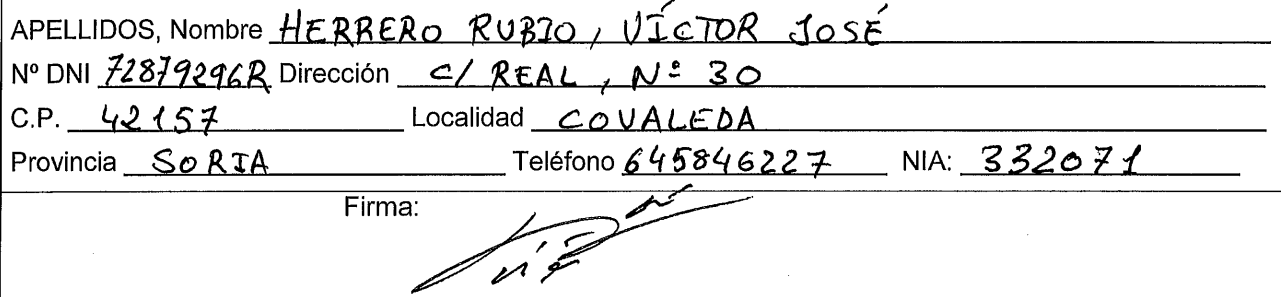 APELLIDOS, Nombre HERRERO RUBIO, VÍCTOR JOSÉ
Nº DNI 72879296R Dirección C/ REAL, Nº 30
C.P. 42157 Localidad COVALEDA
Provincia SORIA Teléfono 645846227 NIA: 332071
Firma: